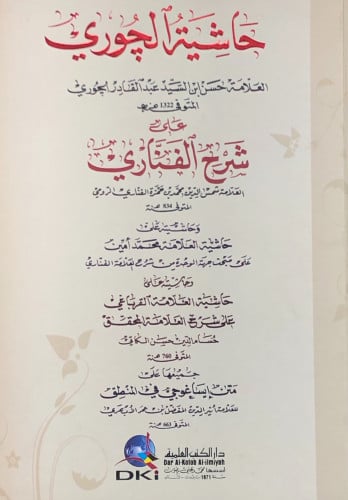 حاشية الجوري
العلامة حسن ابن السيد عبد القادر الجوري
المتوفى 1322 هـ
على
شرح الفناري
العلامة شمس الدين محمد بن حمزة الفناري الرومي
المتوفى 834 هـ
وحاشيته على
حاشية العلامة محمد أمين
على مبحث جهة الوحدة من شرح العلامة الفناري
وحاشيته على
حاشية العلامة القرباغي
على شرح العلامة المحقق
حسام الدين حسن الكاتي
المتوفى 760 هـ
جميعها على
متن إيساغوجي في المنطق
للعلامة أثير الدين المفضل بن عمر الأبهري
المتوفى 663 هـ
دار الكتب العلمية
Dar Al-Kotob Al-ilmiyah
1971
DKi